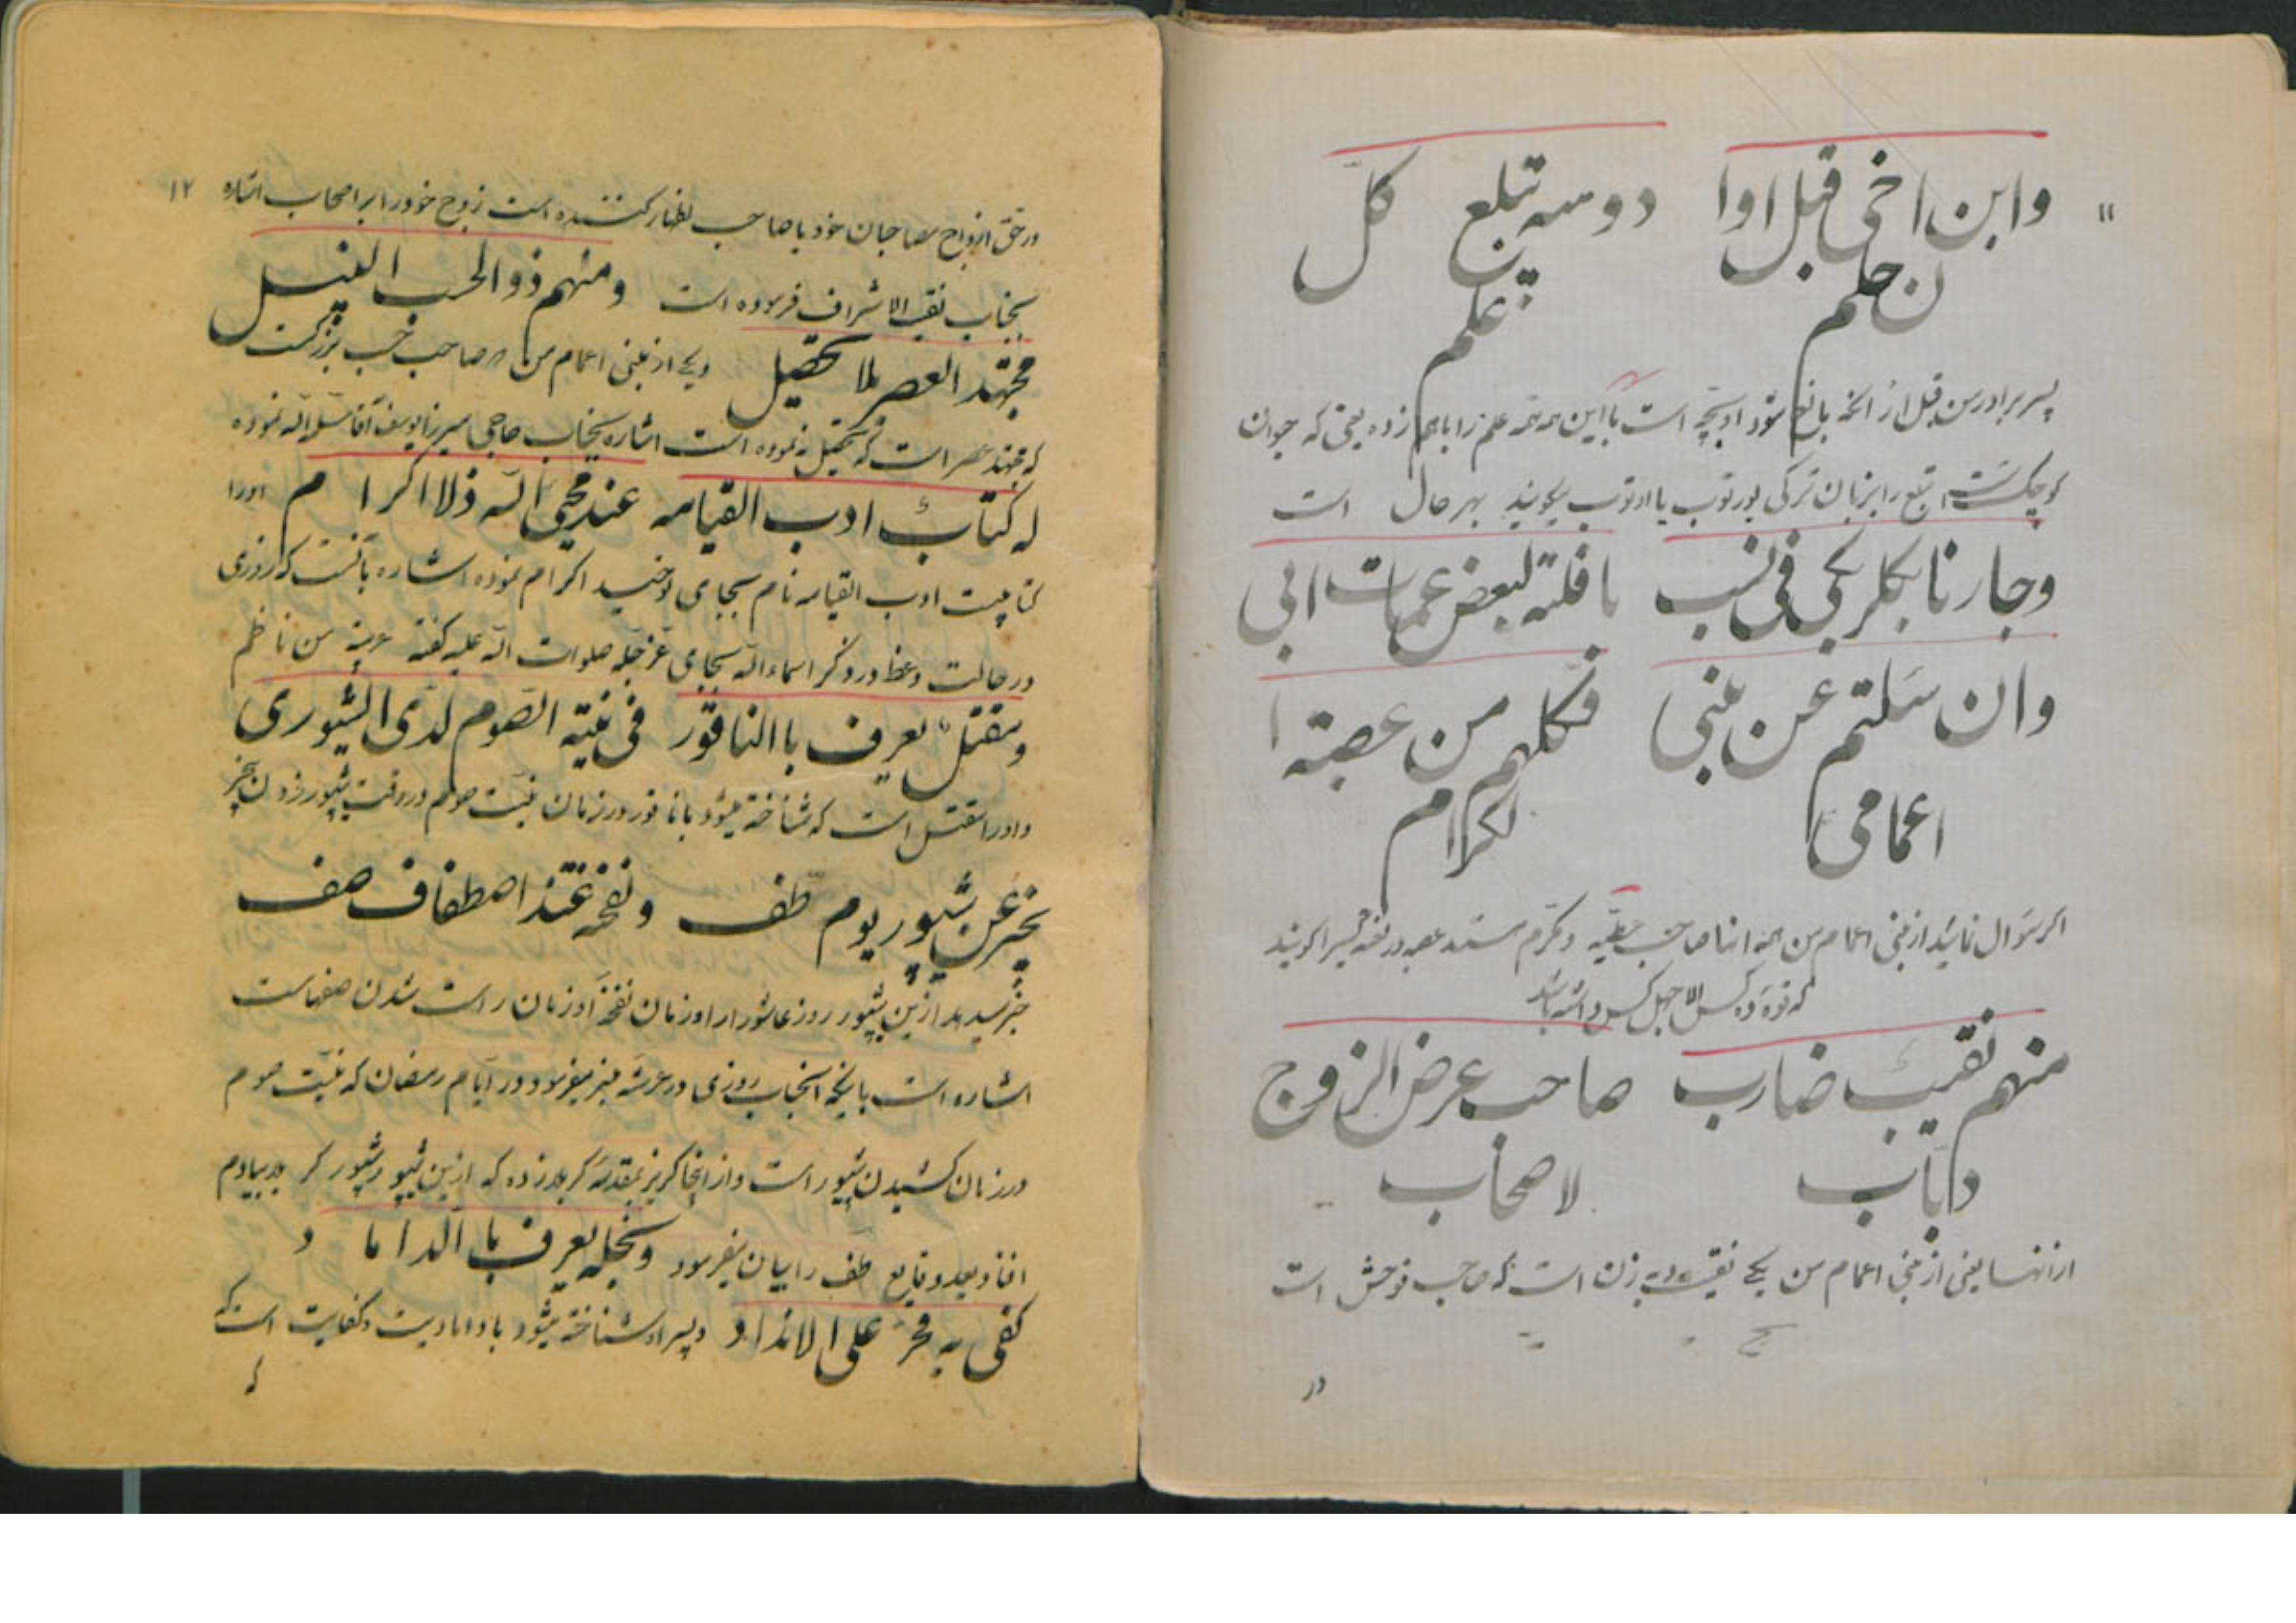 ۱۱
وابن اخی قبل اوا دوسه تبلع کل
ن حلم علم
پسر برادر من قبل از آنکه بالغ شود او بچه است با این همه همه علم را باهم زده یعنی که جوان
کوچک است تبلع را بزبان ترکی یورتوب یا اودتوب میگویند بهر حال است
وجارنا بکلربکی فی نسب یا فلته لبعض عمیات ابی
وان سئلتم عن بنی فکلهم من عصبته
اعمامی لکرام
اگر سؤال نمائید از بنی اعمام من همه آنها صاحب و مکرم هستند عصبه در لغت را گویند
که نوه ده کس الا چهل کس داشته باشد
منهم نقیب ضارب صاحب عرض الزوج
داباب لاصحاب
از آنها یعنی از بنی اعمام من یکی نقیب زن است که صاحب فوحش است
در
۱۲
در حق ازواج مصاحبان خود یا صاحب اظهار کننده است زوج خود را بر اصحاب اشاره
بجناب نقیب الاشراف فرموده است ومنهم ذو الحسب النبیل
مجتهد العصر بلا تحصیل ویکی از بنی اعمام من صاحب حسب بزرگست
که مجتهد عصر است که تحصیل نه نموده است اشاره بجناب حاجی میرزا یوسف آقا سلمه الله نموده
له کتاب ادب القیامه عند محیی الله ذلا اکرام اورا
کتابیست ادب القیامه نام بجای اکرام نموده اشاره بآنست که روزی
در حالت وعظ در ذکر اسماء الله بجای عز جله صلوات الله علیه گفته من ناظم
ومقتل یعرف باالناقور فی نیته الصوم لدی الشیپوری
واورا مقتل است که شناخته میشود بانا قور در زمان نیت صوم در وقت شیپور زدن
یخبر عن شیپور یوم طف ونفخه عند اصطفاف صف
خبر میدهد ازین شیپور روز عاشورا را و زمان نفخ آو زمان راست شدن صفهاست
اشاره است باینکه آنجناب روزی در عرشه منبر میفرمود در ایام رمضان که نیت صوم
در زمان کشیدن شیپور است و از اینجا گریز بمقدمه کربلا زده که ازین شیپور شیپور کربلا بیادم
افتاد و بعد وقایع طف را بیان میفرمود ونجله یعرف با الداماد
کفی به فخر علی الانداد و پسر او شناخته میشود با دامادیت و کفایت است که